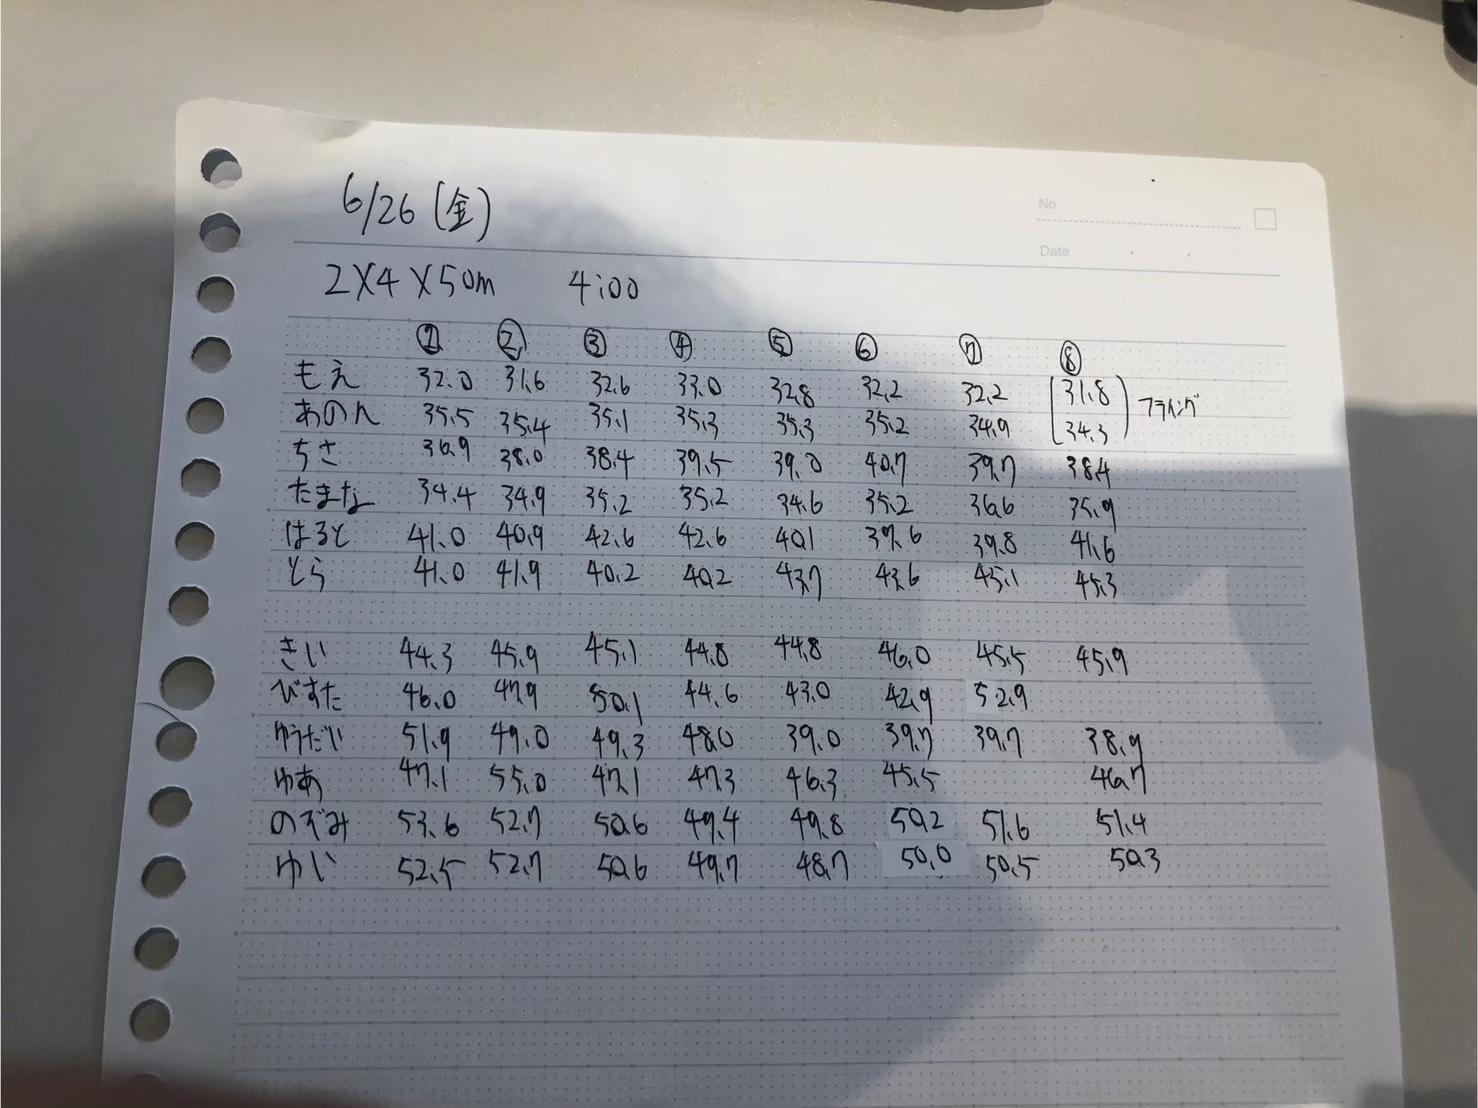 No.
6/26(金)
Date
2×4×50m 4:00
① ② ③ ④ ⑤ ⑥ ⑦ ⑧
もえ 32.0 31.6 32.6 33.0 32.8 32.2 32.2 (31.8
あのん 35.5 35.4 35.1 35.3 35.3 35.2 34.9 34.3) フライング
ちさ 36.9 38.0 38.4 39.5 39.0 40.7 39.7 38.4
たまな 34.4 34.9 35.2 35.2 34.6 35.2 36.6 35.9
はると 41.0 40.9 42.6 42.6 40.1 39.6 39.8 41.6
とら 41.0 41.9 40.2 40.2 43.7 43.6 45.1 45.3
きい 44.3 45.9 45.1 44.8 44.8 46.0 45.5 45.9
びすた 46.0 47.9 50.1 44.6 43.0 42.9 52.9
ゆうだい 51.9 49.0 49.3 48.0 39.0 39.7 39.7 38.9
ゆあ 47.1 55.0 47.1 47.3 46.3 45.5 46.7
のぞみ 53.6 52.7 50.6 49.4 49.8 50.2 51.6 51.4
ゆじ 52.5 52.7 50.6 49.7 48.7 50.0 50.5 50.3